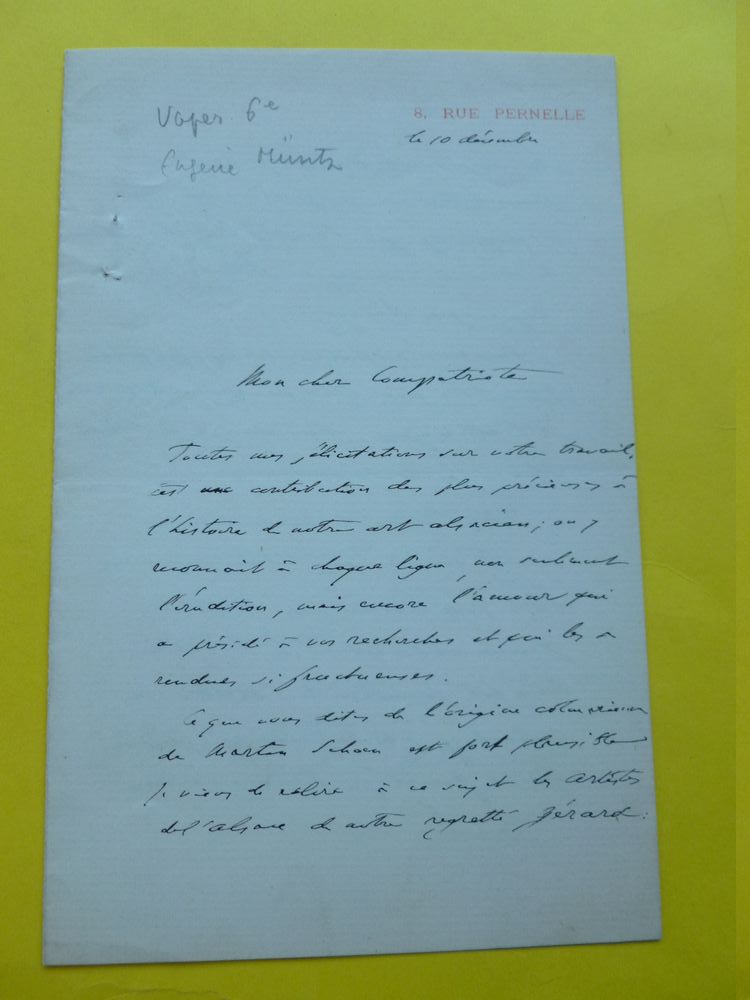 8, RUE PERNELLE
le 10 décembre
6e
Eugène Müntz
Mon cher Compatriote
Toutes mes félicitations sur votre travail,
c'est une contribution des plus précieuses à
l'histoire de notre art alsacien; on y
reconnait à chaque ligne, non seulement
l'érudition, mais encore l'amour qui
a présidé à vos recherches et qui les a
rendues si fructueuses.
Ce que vous dites de l'origine colmarienne
de Martin Schoen est fort plausible
Je viens de relire à ce sujet les Artistes
de l'Alsace de notre regretté Gérard: